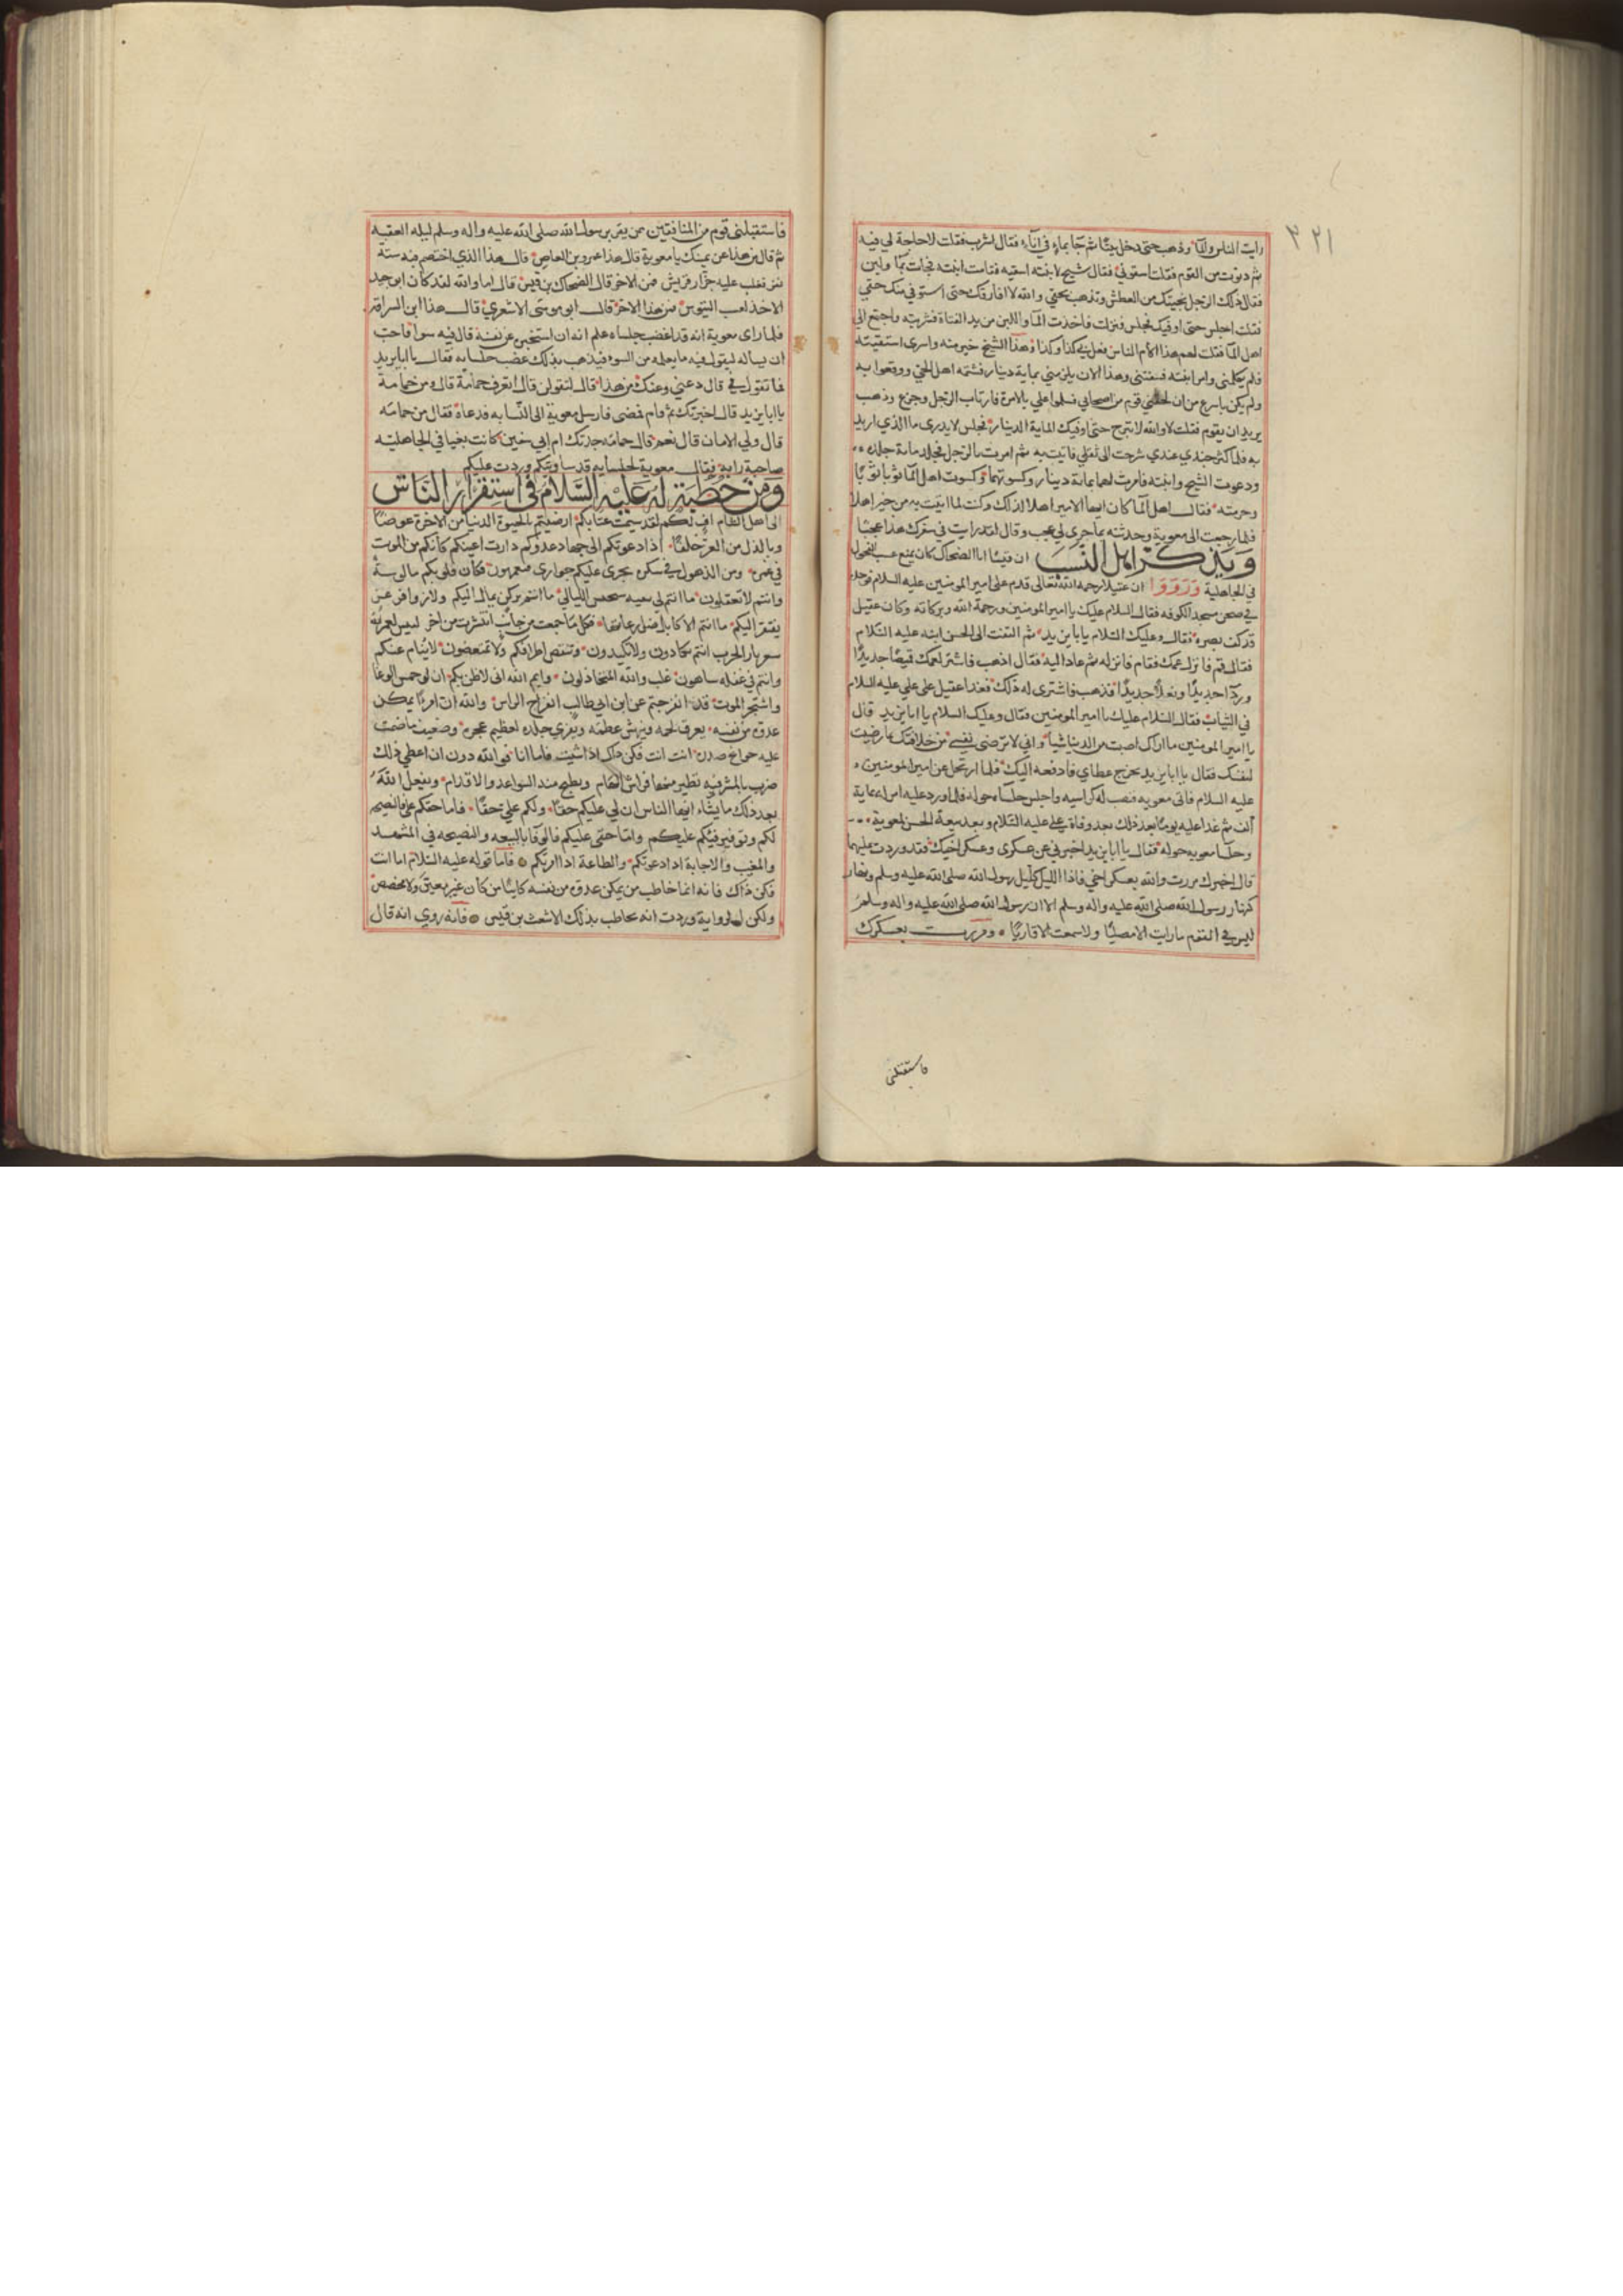 ٣٢١
رايت الناس والمآ وذهب حتى دخل بيتًا ثم جآ بماءٍ في اناءٍ فقال اشرب فقلت لا حاجة لي فيه
ثم دنوت من القوم فقلت اسقوني فقال شيخ لابنته اسقيه فقامت ابنته فجات بمآ ولبن
فقال ذلك الرجل نجيتك من العطش وتذهب بحقي والله لا افارقك حتى استوفي منك حقي
فقلت اجلس حتى اوفيك فجلس فنزلت فاخذت المآ واللبن من يد الفتاة فشربته واجتمع الي
اهل المآ فقلت لهم هذا الأم الناس فعل بي كذا وكذا وهذا الشيخ خير منه واسرى استسقيته
فلم يكلمني وامر ابنته فسقتني وهذا الان يلزمني بماية دينار فشتمه اهل الحي ووقعوا به
ولم يكن باسرع من ان لحقني قوم من اصحابي فسلموا علي بالامرة فارتاب الرجل وجزع وذهب
يريد ان يقوم فقلت لا والله لا تبرح حتى اوفيك الماية الدينار فجلس لا يدرى ما الذي اريد
به فلما كثر جندي عندي سرحت الى ثقلي فاتيت به ثم امرت بالرجل فجلد مائة جلدة
ودعوت الشيخ وابنته فامرت لهما بمائة دينار وكسوتهما وكسوت اهل المآ ثوبا ثوبًا
وحرمته فقال اهل المآ كان ايها الامير اهلا لذلك وكنت لما اتيت به من خير اهلا
فلما رجعت الى معوية وحدثته بما جرى لي عجب وقال لقد رايت في سفرك هذا عجبًا
وَيذكر اهل النسَب ان قيسًا ابا الضحاك كان يبيع عسب الفحول
في الجاهلية وَرَوَوا ان عقيلا رحمه الله تعالى قدم على امير المومنين عليه السلام فوجده
في صحن مسجد الكوفه فقال السلام عليك يا امير المومنين ورحمة الله وبركاته وكان عقيل
قد كف بصره فقال وعليك السلام يا ابا يزيد ثم التفت الى الحسن ابنه عليه السلام
فقال قم فانزل عمك فقام فانزله ثم عاد اليه فقال اذهب فاشتر لعمك قميصًا جديدًا
وردآ جديدًا ونعلاً جديدًا فذهب فاشترى له ذلك فغدا عقيل على علي عليه السلام
في الثياب فقال السلام عليك يا امير المومنين فقال وعليك السلام يا ابا يزيد قال
يا امير المومنين ما اراك اصبت من الدنيا شيأ واني لا ترضى نفسي من خلافتك بما رضيت
لنفسك فقال يا ابا يزيد يخرج عطاي فادفعه اليك فلما ارتحل عن امير المومنين
عليه السلام فاتى معويه فنصب له كراسيه واجلس جلساءه حوله فلما ورد عليه امر له بماية
الف ثم غدا عليه يومًا بعد ذلك بعد وفاة علي عليه السلام وبعد بيعة الحسن لمعوية
وجلسآ معويه حوله فقال يا ابا يزيد اخبرني عن عسكرى وعسكر اخيك فقد وردت عليهما
قال اخبرك مررت والله بعسكر اخي فاذا الليل كليل رسول الله صلى الله عليه وسلم ونهار
كنهار رسول الله صلى الله عليه واله وسلم الا ان رسول الله صلى الله عليه واله وسلم
ليس في القوم ما رايت الا مصليًا ولا سمعت الا قاريًا ومررت بعسكرك
فاستقبلني
فاستقبلني قوم من المنافقين ممن نفر برسول الله صلى الله عليه واله وسلم ليله العقبه
ثم قال من هذا عن يمينك يا معوية قال هذا عمرو بن العاص قال هذا الذي اختصم فيه ستة
نفر فغلب عليه جزار قريش فمن الاخر قال الضحاك بن قيس قال اما والله لقد كان ابو جيد
الاخذ لعسب التيوس فمن هذا الاخر قال ابو موسى الاشعري قال هذا ابن السراقه
فلما راى معوية انه قد اغضب جلساءه علم انه ان استخبره عن نفسه قال فيه سوأ فاحب
ان يساله ليقول فيه ما يعلمه من السوء فيذهب بذلك غضب جلسائه فقال يا ابا يزيد
فما تقول في قال دعني وعنك من هذا قال لتقولن قال اتعرف حمامة قال ومن حمامة
يا ابا يزيد قال اخبرتك ثم قام فمضى فارسل معوية الى النسابه فدعاه فقال من حمامه
قال ولي الامان قال نعم قال حمامه جدتك ام ابي سفين كانت بغيا في الجاهليه
صاحبة رايه فقال معوية لجلسايه قد ساويتكم وزدت عليكم
وَمن خطبَة له عَليْه السَّلام في استنفرار النَاس
الى اهل الشام اف لكم لقد سيمت عتابكم ارضيتم بالحيوة الدنيا من الاخرة عوضًا
وبالذل من العز خلفًا اذا دعوتكم الى جهاد عدوكم دارت اعينكم كانكم من الموت
في غمره ومن الذهول في سكره يرتج عليكم حوارى فتعمهون فكأن قلوبكم مالوسة
وانتم لا تعقلون ما انتم لي بثقه سجيس الليالي ما انتم بركن يمال اليكم ولا زوافر عز
يفتقر اليكم ما انتم الا كابل ضل رعاتها فكلما جمعت من جانب انتشرت من اخر لبيس لعمر الله
سعر نار الحرب انتم تكادون ولا تكيدون وتنتقص اطرافكم ولا تمتعضون لا ينام عنكم
وانتم في غفله ساهون غلب والله المتخاذلون وايم الله اني لاظن بكم ان لو حمس الوغا
واستحر الموت قد انفرجتم عن ابن ابي طالب انفراج الراس والله ان امرءًا يمكن
عدوه من نفسه يعرق لحمه ويهشم عظمه ويفري جلده لعظيم عجزه وضعيف ما ضمت
عليه جوانح صدره انت انت فكن ذاك اذا شيت فاما انا فوالله دون ان اعطي ذلك
ضرب بالمشرفيه تطير منها فراش الهام وتطيح منه السواعد والاقدام ويفعل الله
بعد ذلك ما يشاء ايها الناس ان لي عليكم حقًا ولكم علي حقًا فاما حقكم علي فالنصيحه
لكم وتوفير فيئكم عليكم واما حقي عليكم فالوفا بالبيعه والنصيحه في المشهد
والمغيب والاجابة اذا دعوتكم والطاعة اذا امرتكم فاما قوله عليه السلام اما انت
فكن ذاك فانه انما خاطب من يمكن عدوه من نفسه كاينًا من كان غير معين ولا مخصص
ولكن الرواية وردت انه خاطب بذلك الاشعث بن قيس فانه روي انه قال